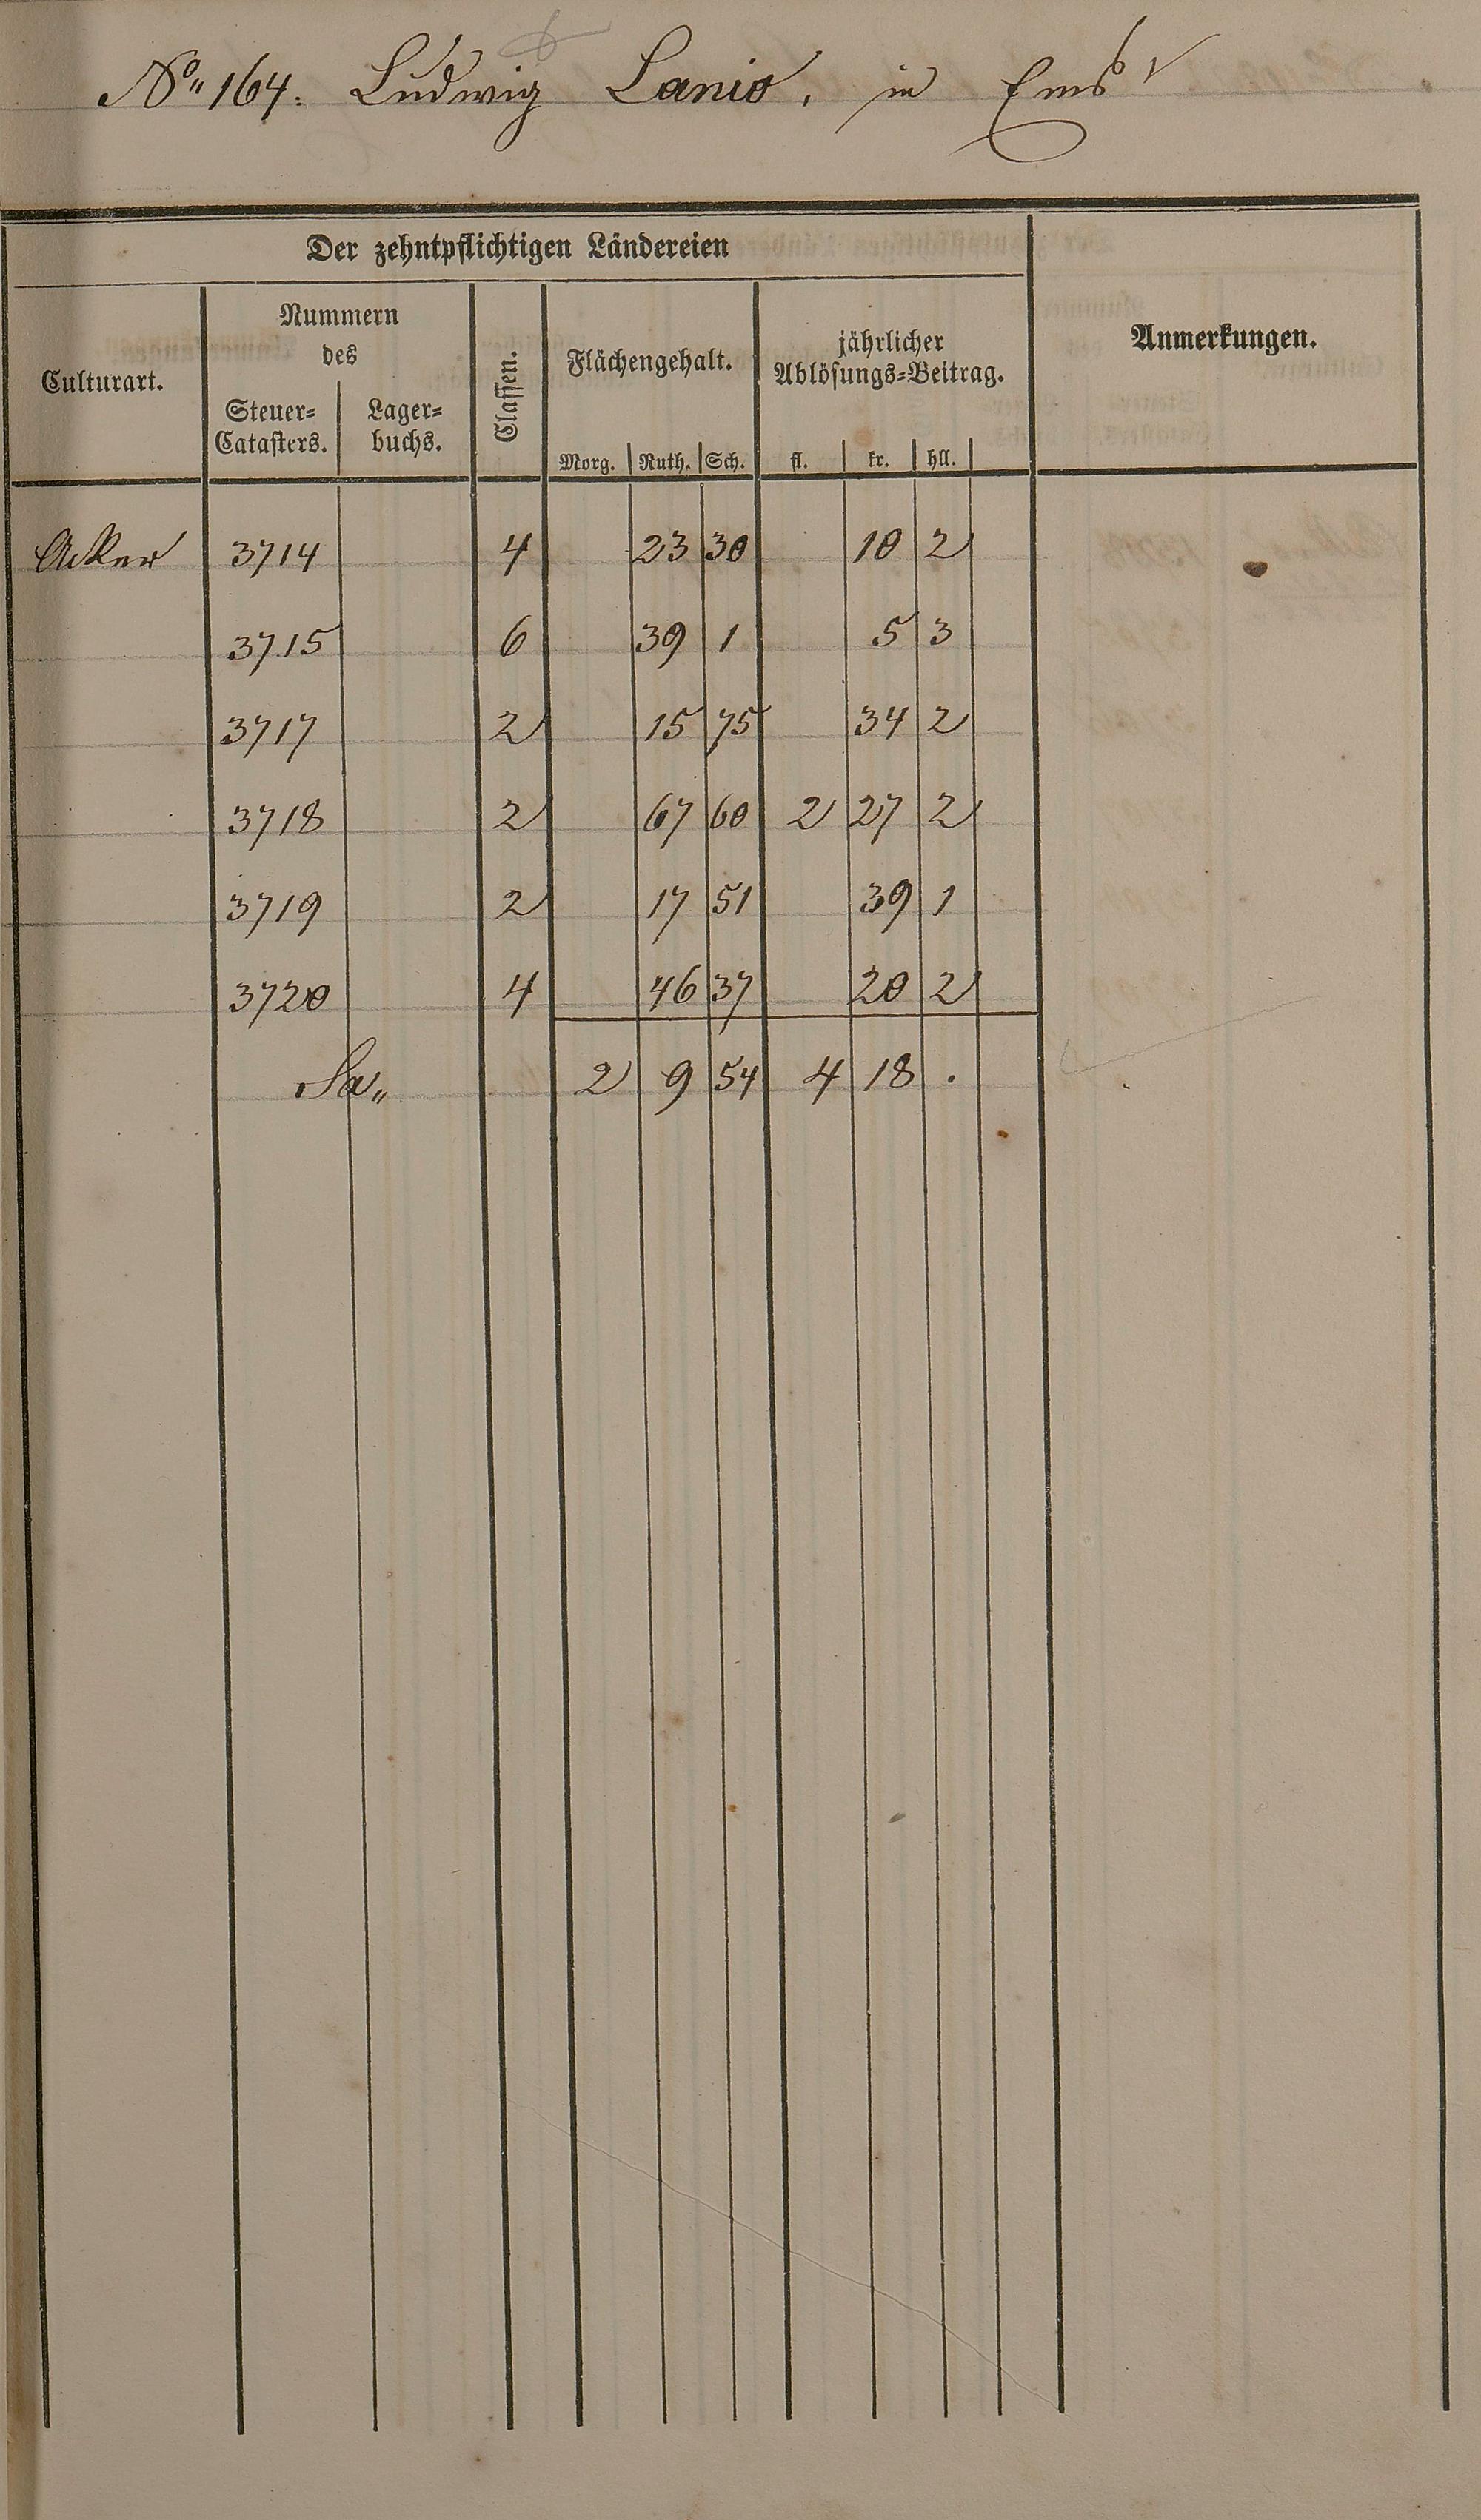 No 164. Ludwig Lanio, in Ems
Der zehntpflichtigen Ländereien
Anmerkungen.
Culturart.
Nummern
des
Steuer=
Catasters.
Lager=
buchs.
Classen.
Flächengehalt.
jährlicher
Ablösungs=Beitrag.
Morg. Ruth. Sch. fl. kr. hll.
Acker 3714 4 23 30 10 2
3715 6 39 1 5 3
3717 2 15 75 34 2
3718 2 67 60 2 27 2
3719 2 17 51 39 1
3720 4 46 37 20 2
Sa„ 2 9 54 4 18 .